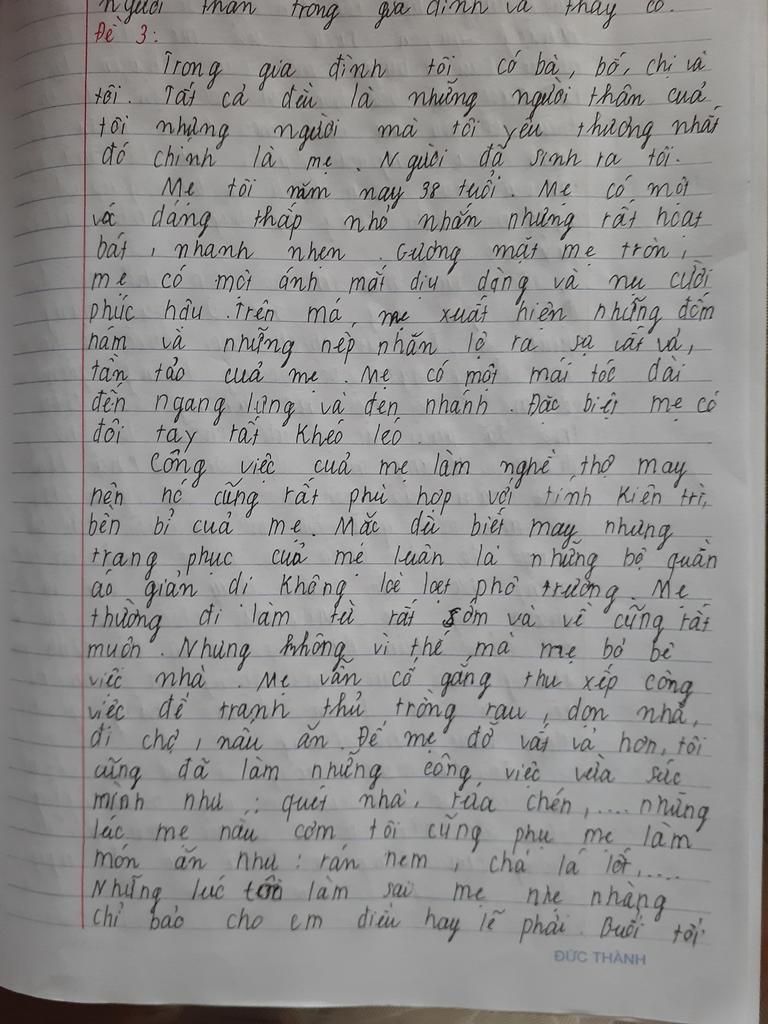 người thân trong gia đình và thầy cô.
Đề 3:
Trong gia đình tôi có bà, bố, chị và
tôi. Tất cả đều là những người thân cuả
tôi nhưng người mà tôi yêu thương nhất
đó chính là mẹ. Người đã sinh ra tôi.
Mẹ tôi năm nay 38 tuổi. Mẹ có một
vó dáng thấp nhỏ nhắn nhưng rất hoạt
bát, nhanh nhẹn. Gương mặt mẹ tròn,
mẹ có một ánh mắt dịu dàng và nụ cười
phúc hậu. Trên má, mẹ xuất hiện những đốm
nám và những nếp nhăn lộ ra sự vất vả,
tần tảo cuả mẹ. Mẹ có một mái tóc dài
đến ngang lưng và đen nhánh. Đặc biệt mẹ có
đôi tay rất khéo léo.
Công việc cuả mẹ làm nghề thợ may
nên nó cũng rất phù hợp với tính kiên trì,
bền bỉ cuả mẹ. Mặc dù biết may nhưng
trang phục cuả mẹ luân là những bộ quần
áo giản dị không loè loẹt phô trương. Mẹ
thường đi làm từ rất sớm và về cũng rất
muộn. Nhưng không vì thế mà mẹ bỏ bê
việc nhà. Mẹ vẫn cố gắng thu xếp công
việc để tranh thủ trồng rau, dọn nhà,
đi chợ, nấu ăn. Để mẹ đỡ vất vả hơn, tôi
cũng đã làm những công việc vừa sức
mình như: quét nhà, rửa chén,.... những
lúc mẹ nấu cơm tôi cũng phụ mẹ làm
món ăn như: rán nem, chả lá lốt,.....
Những lúc tôi làm sai mẹ nhẹ nhàng
chỉ bảo cho em điều hay lẽ phải. Buổi tối
ĐỨC THÀNH